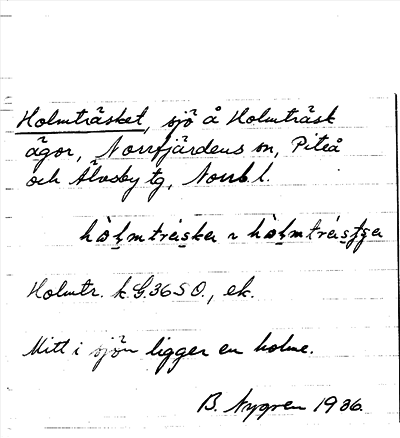 Holmträsket, sjö å Holmträsk
ägor, Norrfjärdens sn, Piteå
och Älvsby tg, Norrb. l.
Holmtr. k. G. 36 S O., ek.
Mitt i sjön ligger en holme.
B. Nygren 1936.